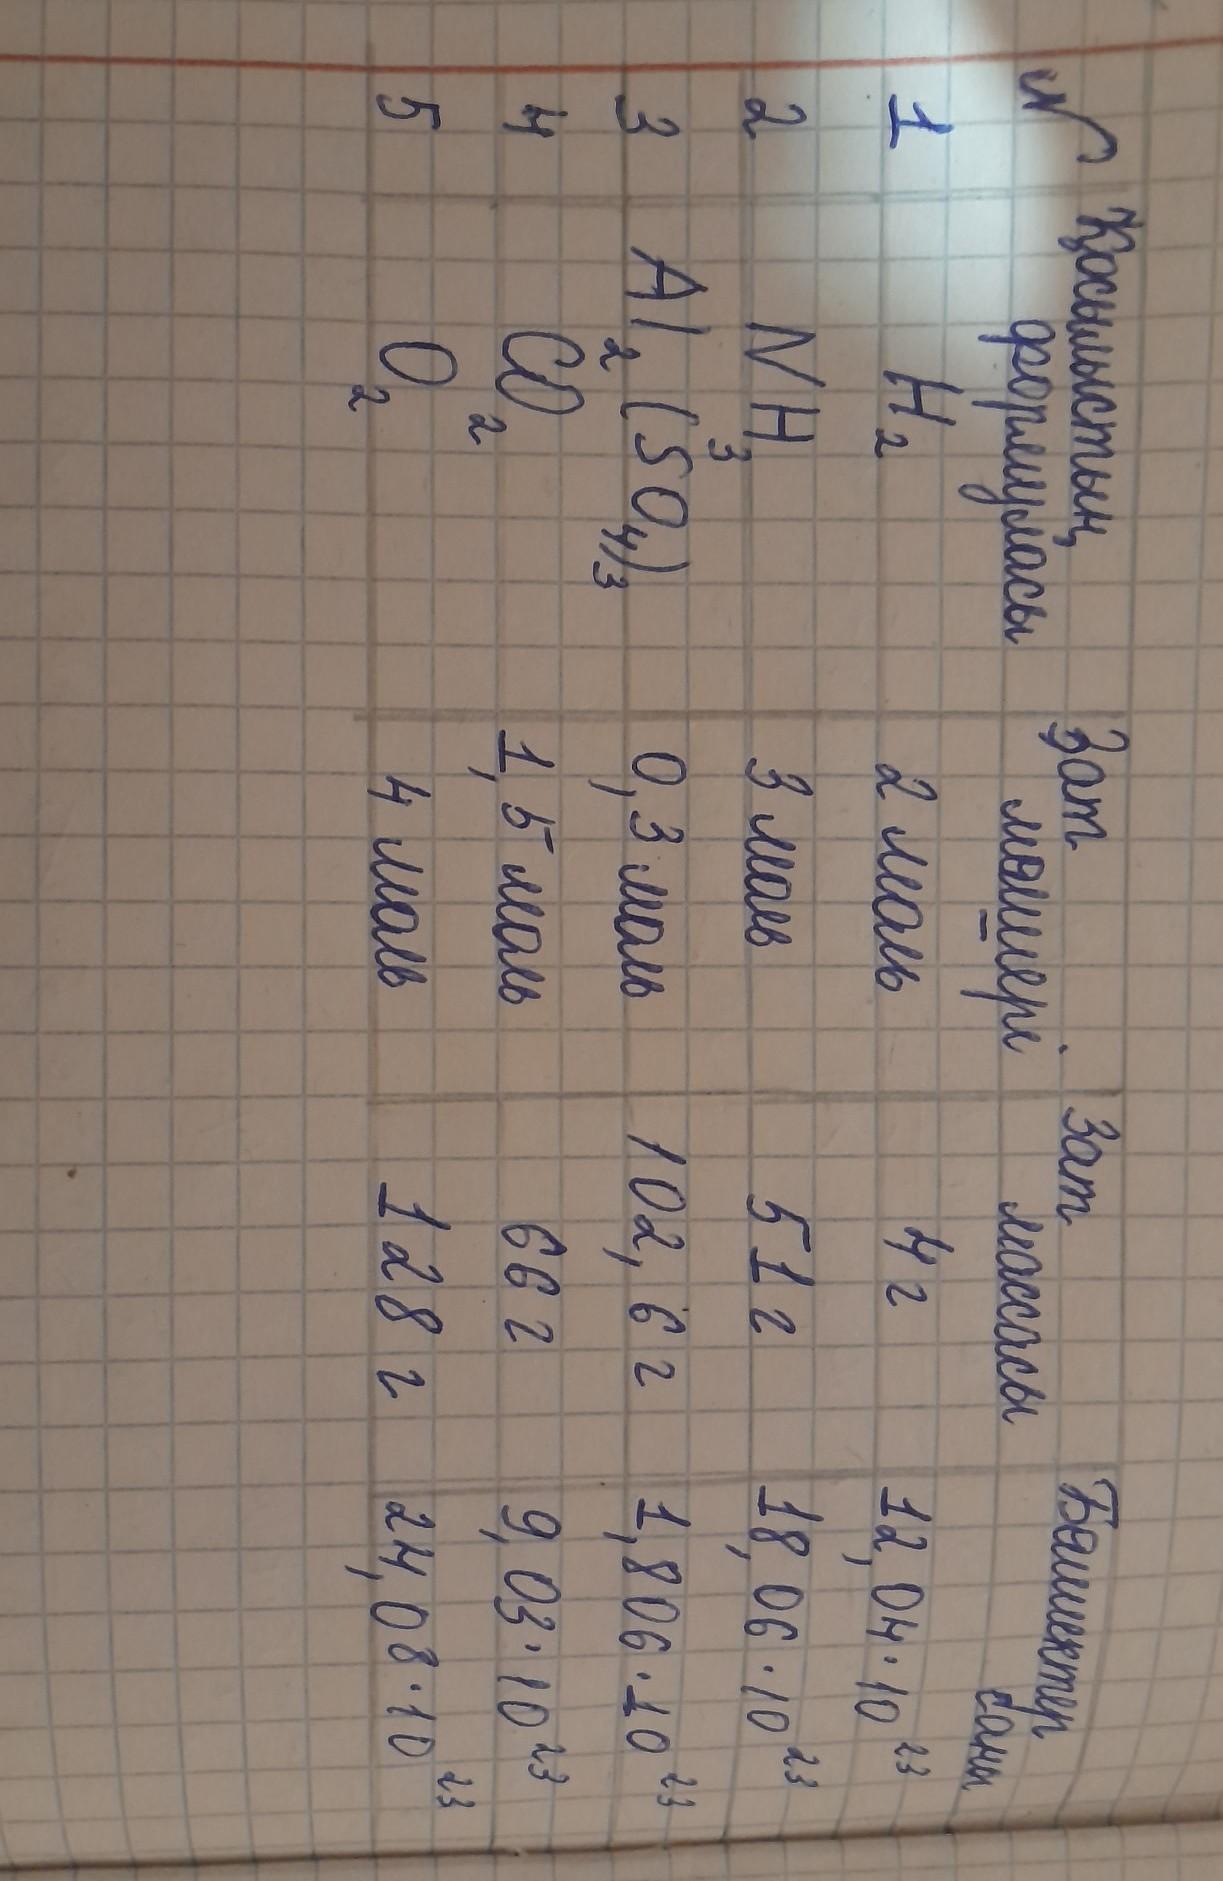 № Қосылыстың формуласы Зат мөлшері Зат массасы Бөлшектер саны
1 H₂ 2 моль 4 г 12,04·10²³
2 NH₃ 3 моль 51 г 18,06·10²³
3 Al₂(SO₄)₃ 0,3 моль 102,6 г 1,806·10²³
4 CO₂ 1,5 моль 66 г 9,03·10²³
5 O₂ 4 моль 128 г 24,08·10²³